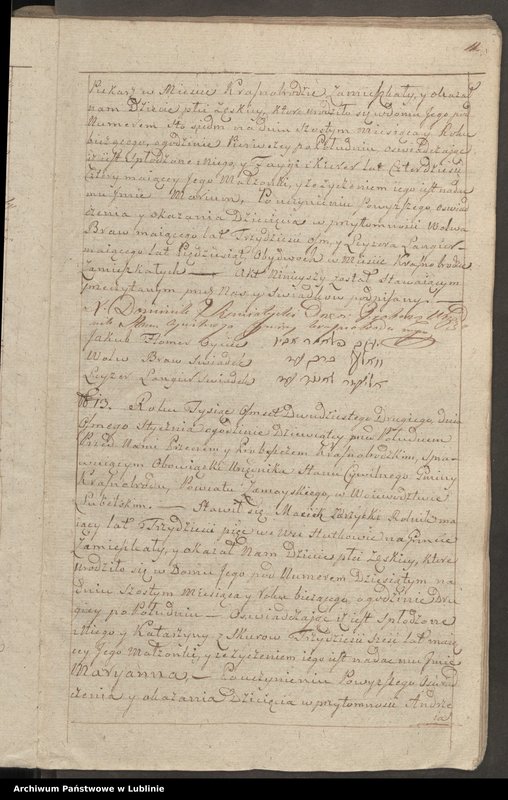 Piekarz w Mieście Krasnobrodzie Zamieszkały, y okazał
nam Dziecie płci żeńskiey, które urodziło się w domu Jego pod
Numerem Sto siedm na dniu szostym Miesiąca y Roku
bieżącego, o godzinie Pierwszey po Południu oświadczając
iż iest Spłodzone z niego, y Fayg lat Czterdzieści
Cztery maiącey Jego Małżonki, y życzeniem iego iest nadać
mu Jmie Maryum, Po uczynieniu Powyższego oświad
czenia y okazania Dziecięcia w przytomności Wolwa
Braw maiącego lat Trzydzieści ośm, y Leyzora Langier
maiącego lat Pięćdziesiąt Obydwóch w Mieście Krasnobrodzie
Zamieszkałych — Akt Ninieyszy został Stawaiącym
przeczytanym przez Nas y Świadków podpisany. —
X Dominik
Jakub Flomer Oyciec יעקב
Wolw Braw Swiadek
Leyzer Langier Swiadek
N 13. Roku Tysiąc Ośmset Dwudziestego Drugiego dnia
Osmego Stycznia o godzinie Dziewiątey przed Południem
Przed Nami Przeorem y Proboszczem Krasnobrodzkim, Spra-
wuiącym Obowiązki Urzędnika Stanu Cywilnego Gminy
Krasnobrodu, Powiatu Zamoyskiego, w Woiewództwie
Lubelskim. — Stawił się Maciek Zarzycki Rolnik ma
iący lat Trzydzieści pięć w Wsi Hutkowie na Gruncie
Zamieszkały, y okazał Nam Dziecie płci żeńskiey, które
urodziło się w Domu Jego pod Numerem Dziesiątym na
Dniu Szostym Miesiąca y Roku bieżącego o godzinie Dru
giey po Południu — Oświadczając iż iest Spłodzone
z Niego y Katarzyny z Skurow Trzydzieści Sześć lat maią
cey Jego Małżonki, y życzeniem iego iest nadać mu Jmie
Maryanna — Po uczynieniu Powyższego Oświad
czenia y okazania Dziecięcia w przytomności Andrze
ia
Archiwum Państwowe w Lublinie